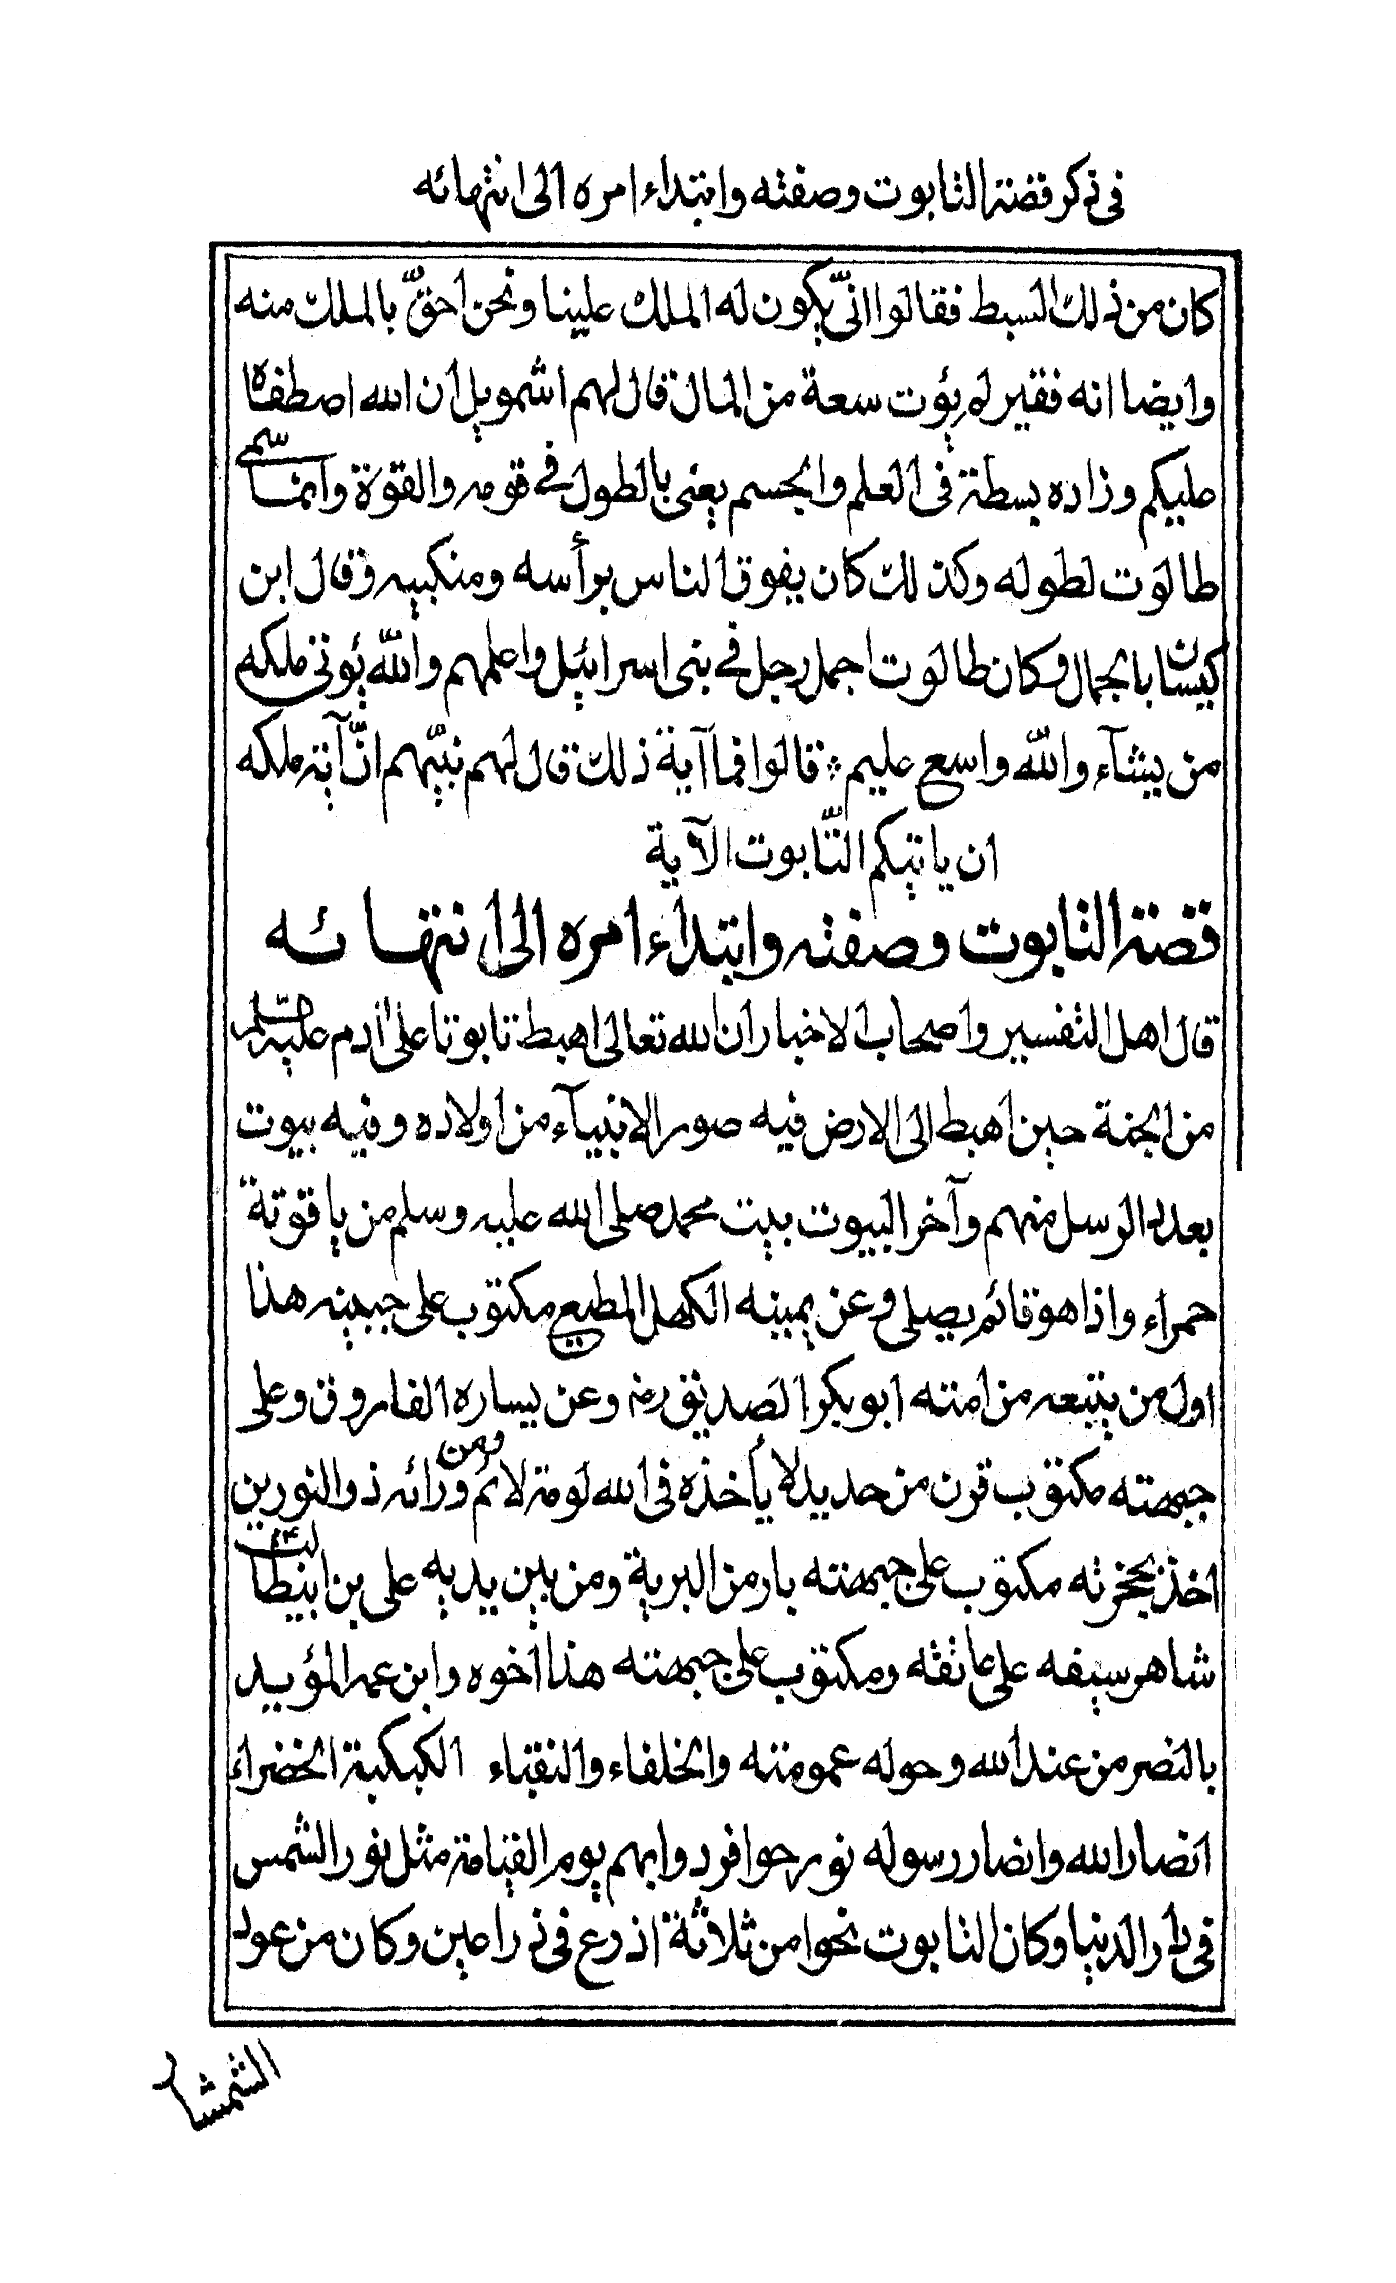 فى ذكر قصة التابوت وصفته وابتداء امره الى انتهائه
كان من ذلك السبط فقالوا انّى يكون له الملك علينا ونحن احقّ بالملك منه
وايضا انه فقير لم يؤت سعة من المال قال لهم اشمويل ان الله اصطفاه
عليكم وزاده بسطة فى العلم والجسم يعنى بالطول فى قومه والقوة وانما سمى
طالوت لطوله وكذلك كان يفوق الناس برأسه ومنكبيه وقال ابن
كيسان بالجمال وكان طالوت اجمل رجل فى بنى اسرائيل واعلمهم والله يؤتى ملكه
من يشآء والله واسع عليم قالوا فما آية ذلك قال لهم نبيّهم انّ آية ملكه
ان ياتيكم التّابوت الآية
قصة التابوت وصفته وابتداء امره الى انتهائه
قال اهل التفسير واصحاب الاخبار ان الله تعالى اهبط تابوتا على آدم عليه السلم
من الجنة حين اهبط الى الارض فيه صور الانبيآء من اولاده وفيه بيوت
بعدد الرسل منهم وآخر البيوت بيت محمد صلى الله عليه وسلم من ياقوتة
حمراء واذا هو قائم يصلى وعن يمينه الكهل المطيع مكتوب على جبينه هذا
اول من يتبعه من امته ابو بكر الصديق رضـ وعن يساره الفاروق وعلى
جبهته مكتوب قرن من حديد لا يأخذه فى الله لومة لائم ومن ورائه ذو النورين
اخذ بحجزته مكتوب على جبهته بار من البررة ومن بين يديه على بن ابيطالب
شاهر سيفه على عاتقه ومكتوب على جبهته هذا اخوه وابن عمه المؤيد
بالنصر من عند الله وحوله عمومته والخلفاء والنقباء الكبكبة الخضراء
انصار الله وانصار رسوله نور حوافر دوابهم يوم القيامة مثل نور الشمس
فى دار الدنيا وكان التابوت نحوا من ثلاثة اذرع فى ذراعين وكان من عود
الشمشار